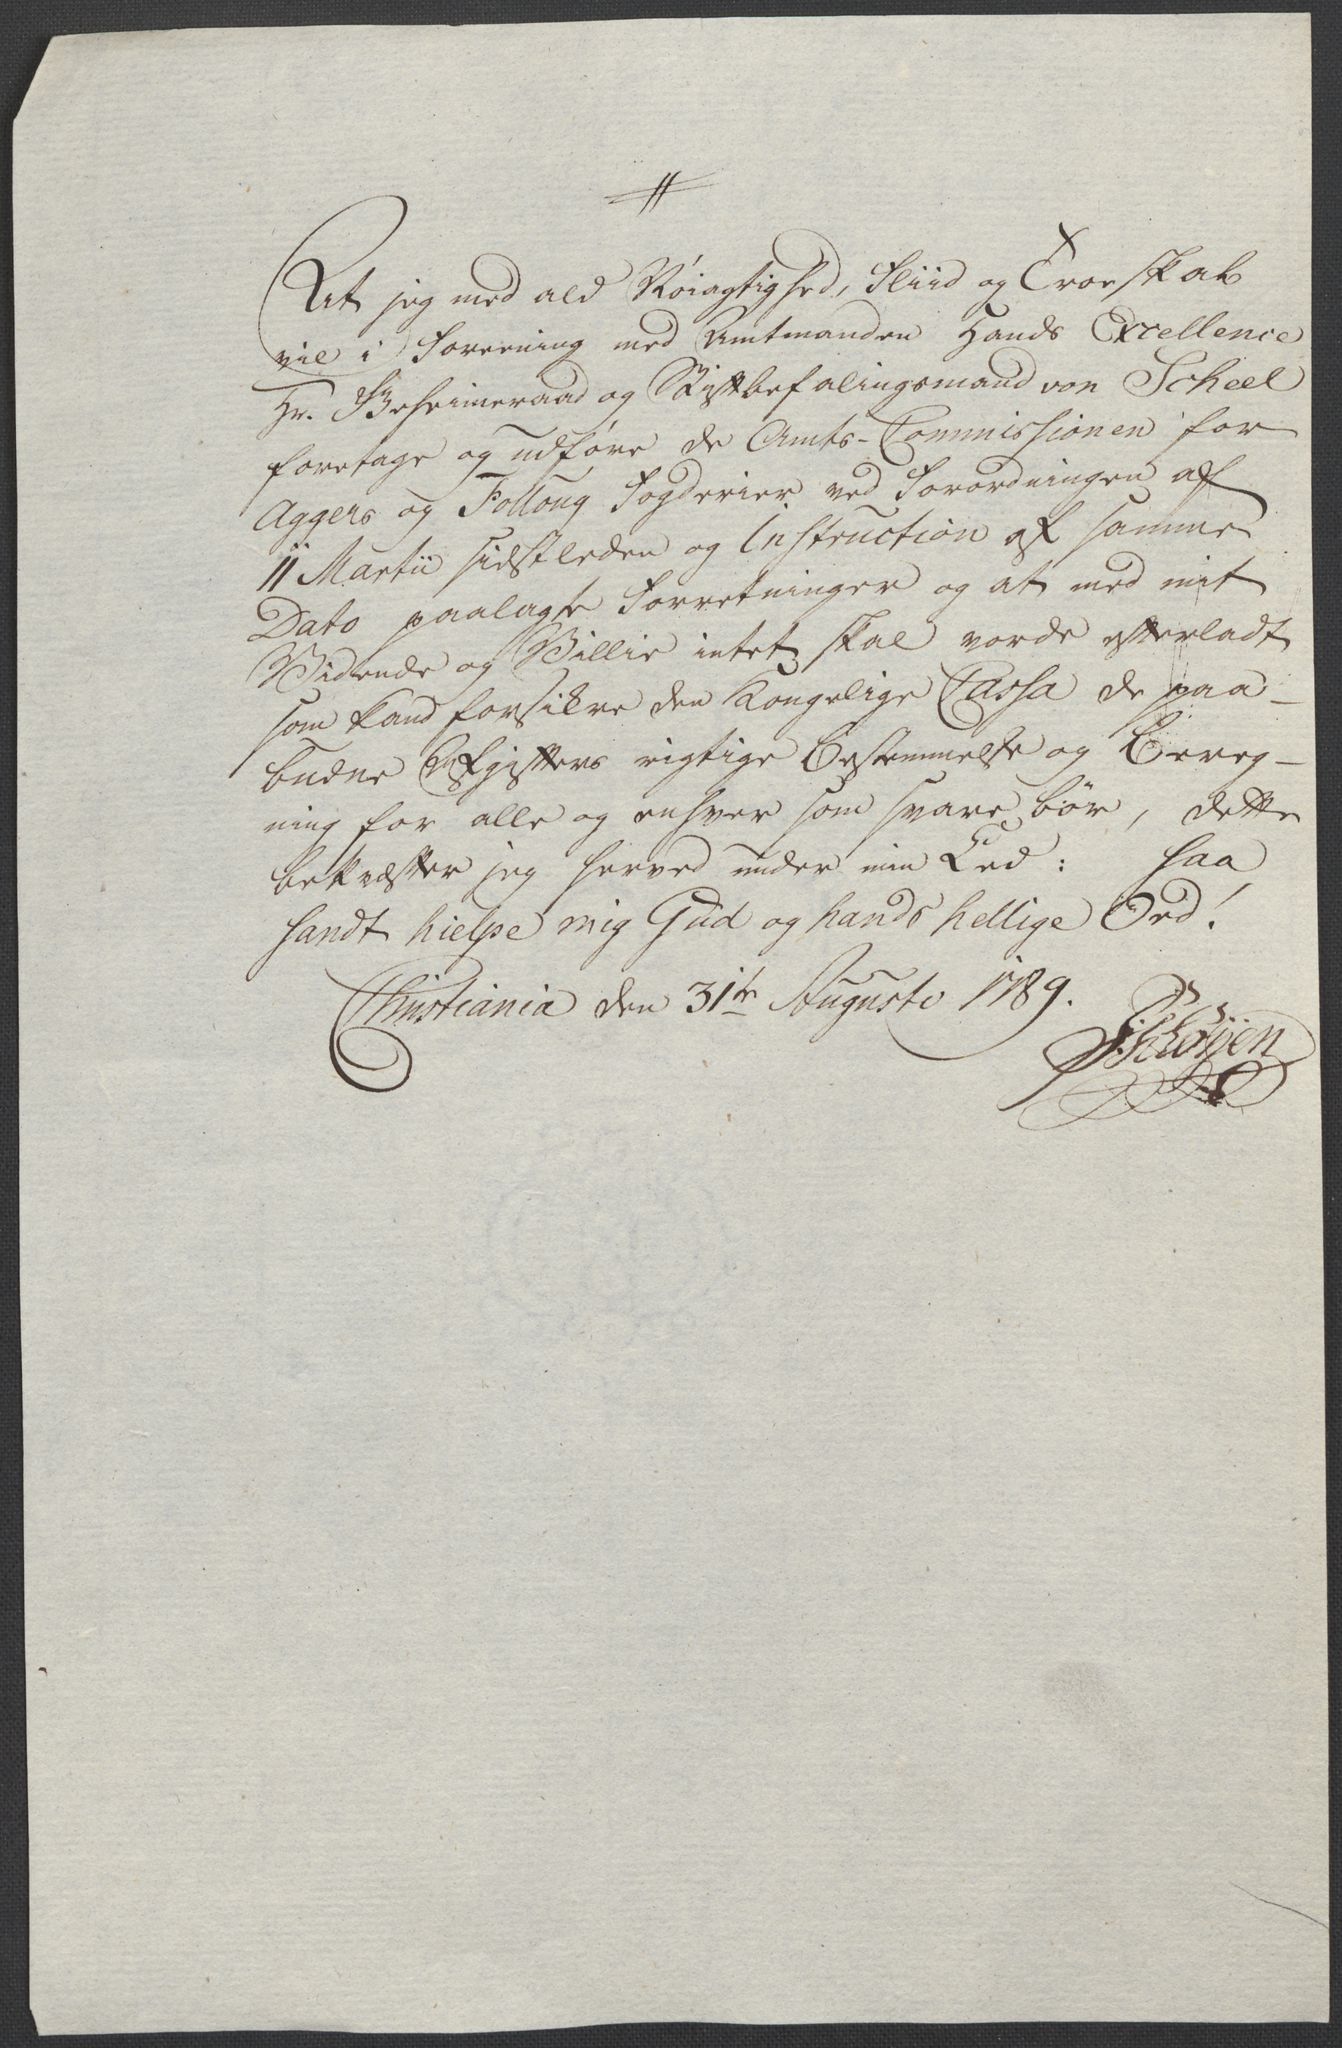 At jeg med ald Nøiagtighed, Fliid og Troeskab
vil i Foreening med Amtmanden Hands Excellence
Hr. Geheimeraad og Stiftbefalingsmand von Scheel
foretage og udføre de Amts-Commissionen for
Aggers og Follong Fogderier ved Forordningen af
11 Martii sidstleden og Instruction af samme
Dato paalagte Forretninger og at med mit
Vidende og Villie intet skal vorde efterladt
som kand forsikre den Kongelige Cassa de paa-
budne Afgifters rigtige Bestemmelse og Bereg-
ning for alle og enhver som svare bør, dette
bekræfter jeg herved under min Eed: saa
sandt hielpe mig Gud og hands hellige Ord!
Christiania den 31te Augusti 1789.